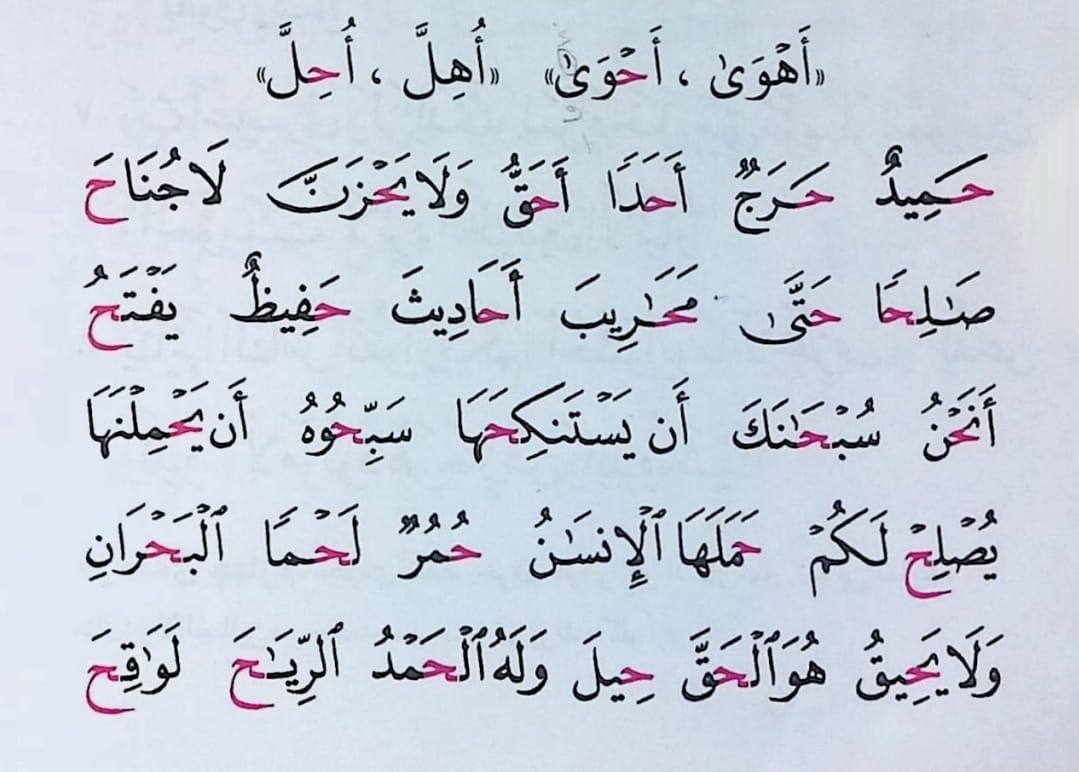 «أَهْوَىٰ ، أَحْوَىٰ» «أُهِلَّ ، أُحِلَّ»
حَمِيدٌ حَرَجٌ أَحَدًا أَحَقُّ وَلَا يَحْزَنَّ لَا جُنَاحَ
صَٰلِحًا حَتَّىٰ مَحَٰرِيبَ أَحَادِيثَ حَفِيظٌ يَفْتَحُ
أَنَحْنُ سُبْحَٰنَكَ أَن يَسْتَنكِحَهَا سَبِّحُوهُ أَن يَحْمِلْنَهَا
يُصْلِحْ لَكُمْ حَمَلَهَا ٱلْإِنسَٰنُ حُمُرٌ لَحْمًا ٱلْبَحْرَانِ
وَلَا يَحِيقُ هُوَ ٱلْحَقَّ حِيلَ وَلَهُ ٱلْحَمْدُ ٱلرِّيَٰحَ لَوَٰقِحَ